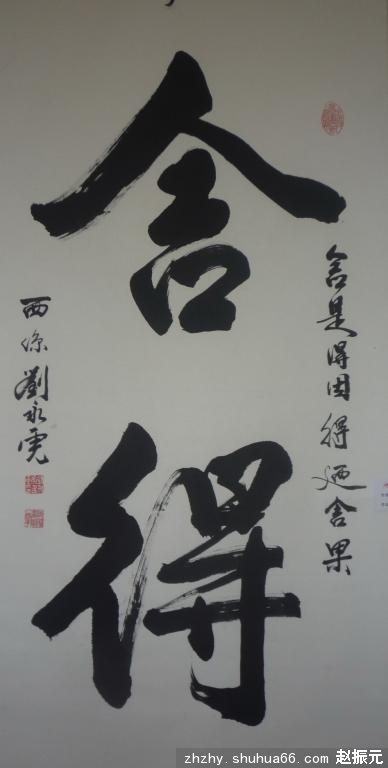 舍得
舍是得因得迺舍果
劉永
zhzhy.shuhua66.com 赵振元